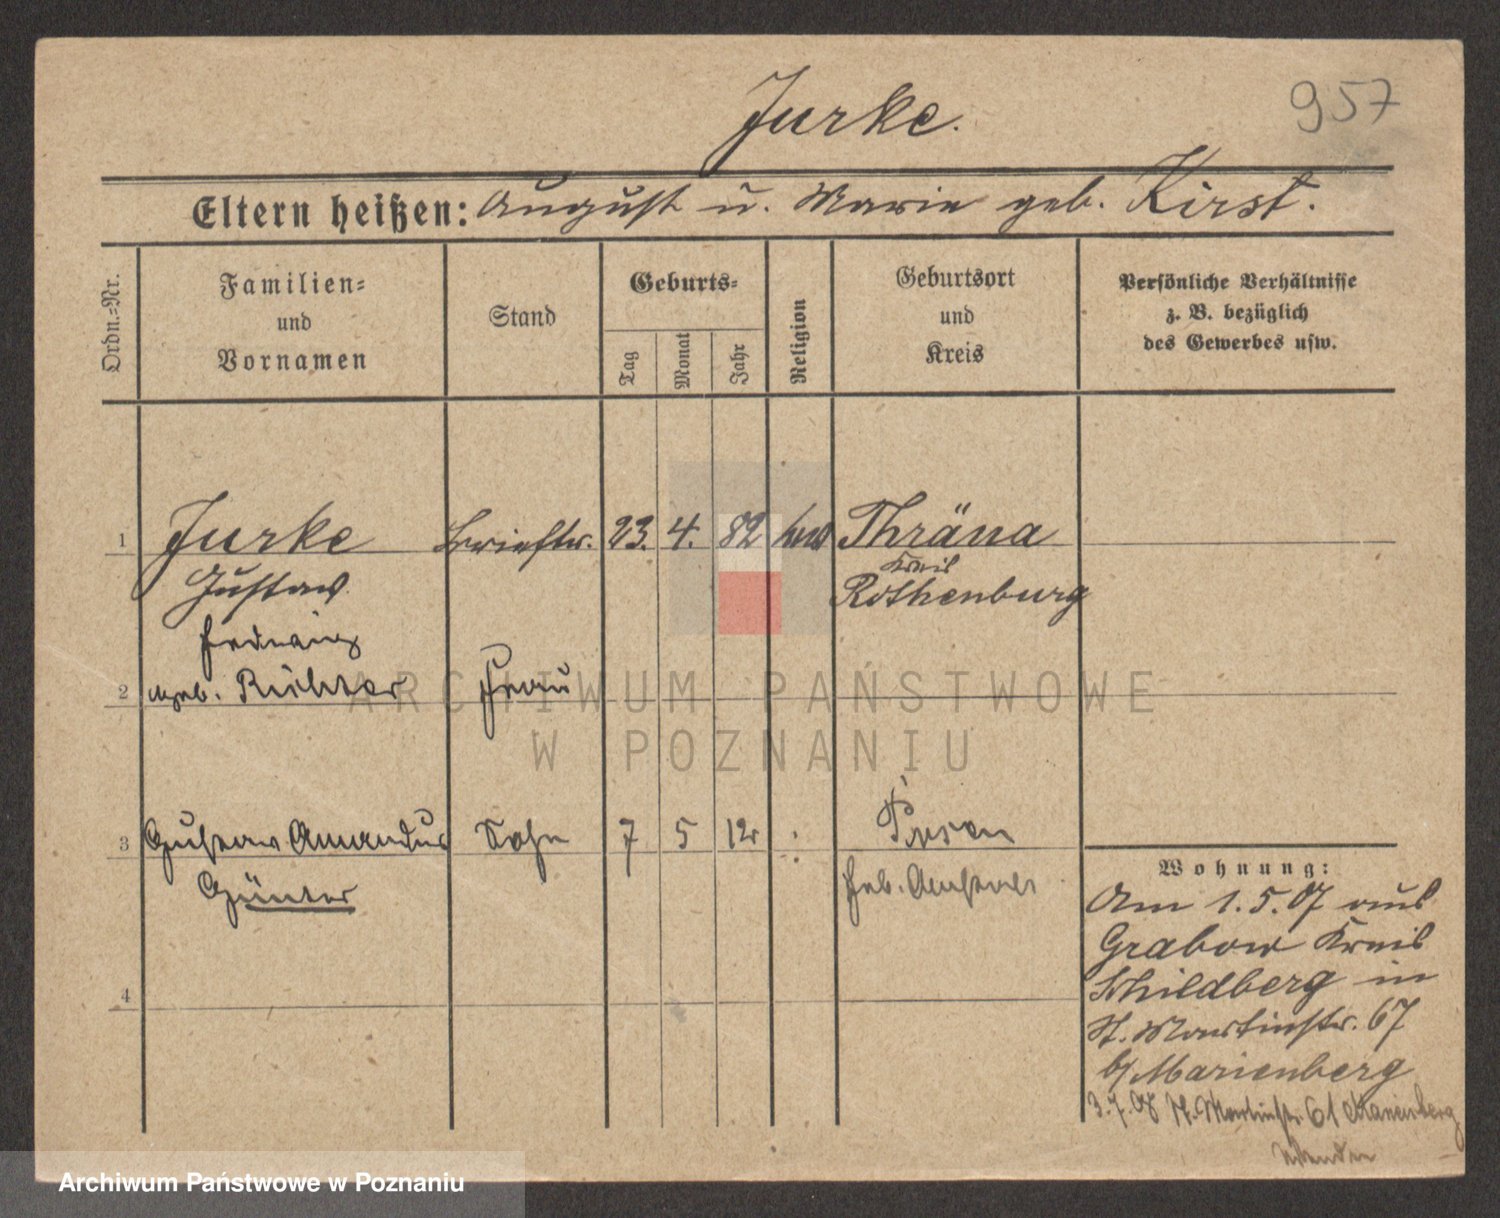 957
Jurke.
Eltern heißen: August u. Marie geb. Kirst.
Ordn.-Nr.
Familien-
und
Vornamen
Stand
Geburts-
Tag
Monat
Jahr
Religion
Geburtsort
und
Kreis
Persönliche Verhältnisse
z. B. bezüglich
des Gewerbes usw.
1 Jurke Brieftr. 23. 4. 82 Thräna
Gustav
Kreis
Rothenburg
2 geb. Richter Frau
3 Gustav Amandus Sohn 7 5 12 Posen
Günter
4
Wohnung:
Am 1.5.07 aus
Grabow Kreis
Schildberg in
St. Martinstr. 67
b/Marienberg
3.7.08 St. Martinstr. 61 Marienberg
ARCHIWUM PAŃSTWOWE
W POZNANIU
Archiwum Państwowe w Poznaniu